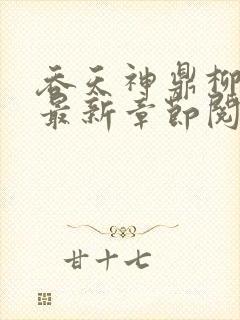 吞天神鼎柳
最新章节阅
甘十七